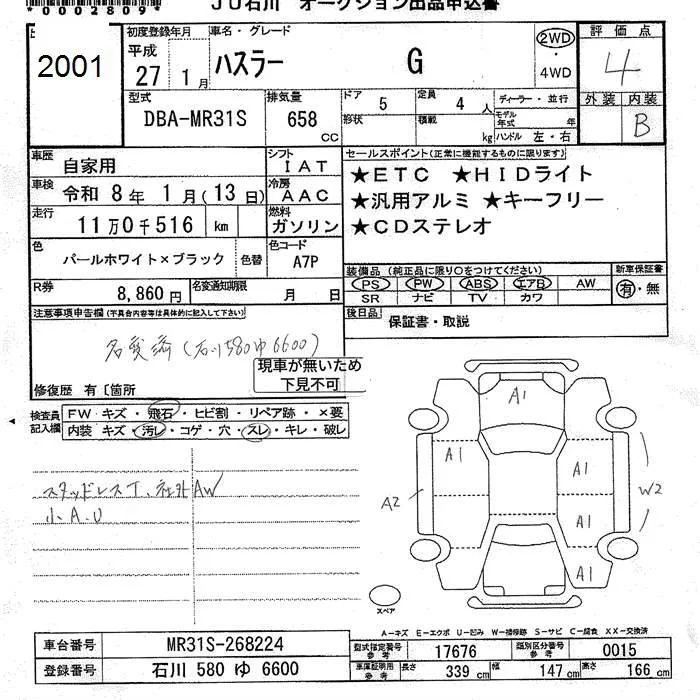 *0002809*
JU石川 オークション出品申込書
2001
初度登録年月 車名・グレード
平成 27 1月 ハスラー G
2WD ・ 4WD
評価点
4
外装 内装
B
型式 DBA-MR31S
排気量 658 CC
ドア 5 定員 4人
形状 積載 kg
ディーラー・並行
モデル年式 年
ハンドル 左・右
車歴 自家用
シフト IAT
車検 令和 8年 1月(13日)
冷房 AAC
走行 11万0千516 km
燃料 ガソリン
色 パールホワイト×ブラック 色替
色コード A7P
R券 8,860円 名変通知期限 月 日
セールスポイント(正常に機能するものに限ります)
★ETC ★HIDライト
★汎用アルミ ★キーフリー
★CDステレオ
装備品(純正品に限り○をつけてください)
PS PW ABS エアB AW
SR ナビ TV カワ
新車保証書
有・無
後日品 保証書・取説
注意事項申告欄(不具合内容等は具体的に記入して下さい)
名変済(石川580ゆ6600)
現車が無いため
下見不可
修復歴 有〔箇所
検査員記入欄
FW キズ・飛石・ヒビ割・リペア跡・×要
内装 キズ・汚レ・コゲ・穴・スレ・キレ・破レ
スタッドレスT、社外AW
小A.U
A1
A1
A1
A2
W2
A1
A1
スペア
A-キズ E-エクボ U-凹み W-補修跡 S-サビ C-腐食 XX-交換済
車台番号 MR31S-268224
登録番号 石川 580 ゆ 6600
型式指定番号 参考 17676 類別区分番号 参考 0015
車庫証明用 参考 長さ 339 cm 幅 147 cm 高さ 166 cm